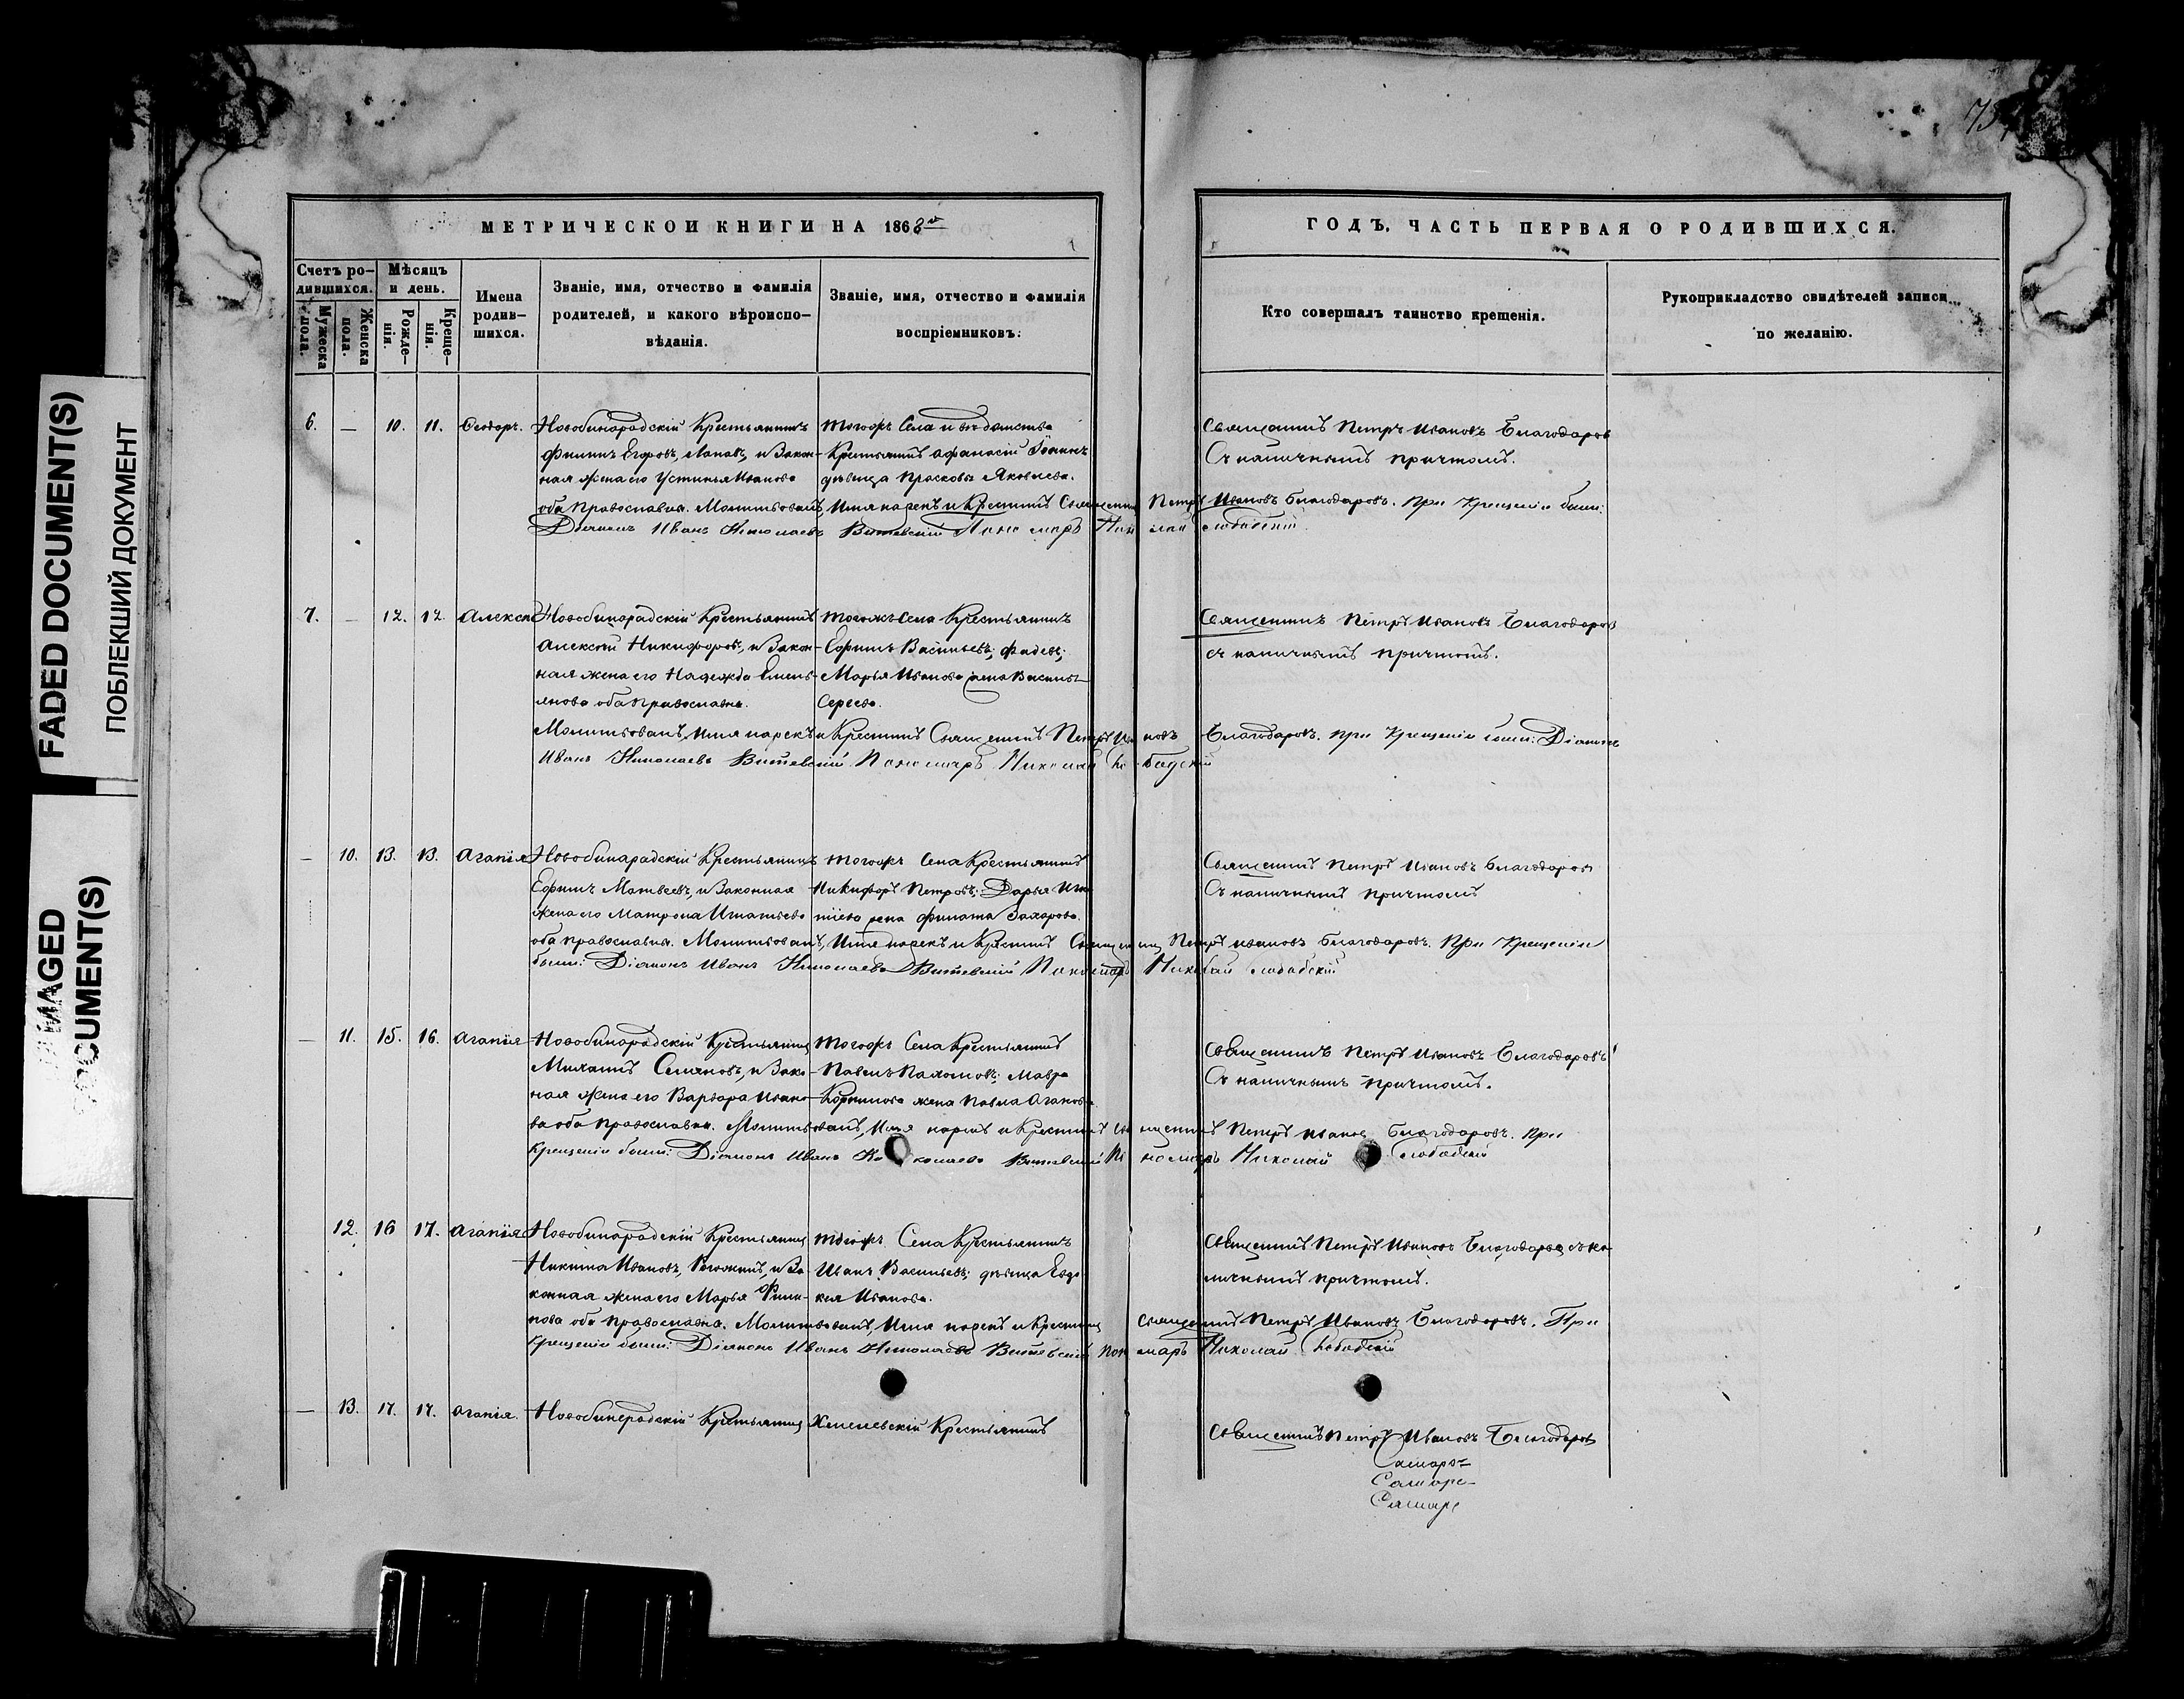 FADED DOCUMENT(S)
ПОБЛЕКШИЙ ДОКУМЕНТ
МЕТРИЧЕСКОЙ КНИГИ НА 1868й
ГОДЪ, ЧАСТЬ ПЕРВАЯ О РОДИВШИХСЯ.
Счетъ родившихся.
Мужеска пола.
Женска пола.
Мѣсяцъ и день.
Рожденія.
Крещенія.
Имена родившихся.
Званіе, имя, отчество и фамилія
родителей, и какого вѣроиспо-
вѣданія.
Званіе, имя, отчество и фамилія
воспріемниковъ.
Кто совершалъ таинство крещенія.
Рукоприкладство свидѣтелей записи
по желанію.
6. — 10. 11. Ѳеодоръ.
Новобинарадскій Крестьянинъ
Филипъ Егоровъ, и Закон-
ная жена его Устинья Иванова
оба православна.
тогожъ Села и вѣдомства
Крестьянинъ Афанасій
дѣвица Прасковья Яковлева.
Священникъ Петръ Ивановъ Благодаровъ
Съ наличнымъ причтомъ.
Молитвовалъ, Имя нарекъ и Крестилъ Священникъ Петръ Ивановъ Благодаровъ. При Крещеніи были:
Діаконъ Иванъ Николаевъ Витевскій Пономарь Николай Слободскій
7. — 12. 12. Алексѣй
Новобинарадскій Крестьянинъ
Алексѣй Никифоровъ, и Закон-
ная жена его Надежда Емель-
янова оба православна.
тогожъ Села Крестьянинъ
Ефимъ Васильевъ;
Марья Иванова жена Василья
Священникъ Петръ Ивановъ Благодаровъ
съ наличнымъ причтомъ.
Молитвовалъ, Имя нарекъ и Крестилъ Священникъ Петръ Ивановъ Благодаровъ. При Крещеніи были: Діаконъ
Иванъ Николаевъ Витевскій Пономарь Николай Слободскій
— 10. 13. 13. Агапія
Новобинарадскій Крестьянинъ
Ефимъ Матвеевъ, и Законная
жена его Матрона Игнатьева
оба православна.
тогожъ Села Крестьянинъ
Никифоръ Петровъ; Дарья
жена Филата Захарова.
Священникъ Петръ Ивановъ Благодаровъ
Съ наличнымъ причтомъ
Молитвовалъ, Имя нарекъ и Крестилъ Священникъ Петръ Ивановъ Благодаровъ. При Крещеніи
были: Діаконъ Иванъ Николаевъ Витевскій Пономарь Николай Слободскій
— 11. 15. 16. Агапія
Новобинарадскій Крестьянинъ
Михаилъ Семеновъ, и Зако-
ная жена его Варвара Ивано-
ва оба православна.
тогожъ Села Крестьянинъ
Павелъ Пахомовъ; Мавра
Корнилова жена Павла
Священникъ Петръ Ивановъ Благодаровъ
Съ наличнымъ причтомъ.
Молитвовалъ, Имя нарекъ и Крестилъ Священникъ Петръ Ивановъ Благодаровъ. При
Крещеніи были: Діаконъ Иванъ Николаевъ Витевскій Пономарь Николай Слободскій
12. 16 17. Агапія
Новобинарадскій Крестьянинъ
Никита Ивановъ, и За-
конная жена его Марья Фили-
пова оба православна.
тогожъ Села Крестьянинъ
Иванъ Васильевъ; дѣвица Евдо-
кея Иванова.
Священникъ Петръ Ивановъ Благодаровъ съ на-
личнымъ причтомъ.
Молитвовалъ, Имя нарекъ и Крестилъ священникъ Петръ Ивановъ Благодаровъ. При
Крещеніи были: Діаконъ Иванъ Николаевъ Витевскій Пономарь Николай Слободскій
— 13. 17. 17. Агапія.
Новобинарадскій Крестьянинъ
Хмелевскій Крестьянинъ
Священникъ Петръ Ивановъ Благодаровъ
Самаръ
Самаре
Самаре